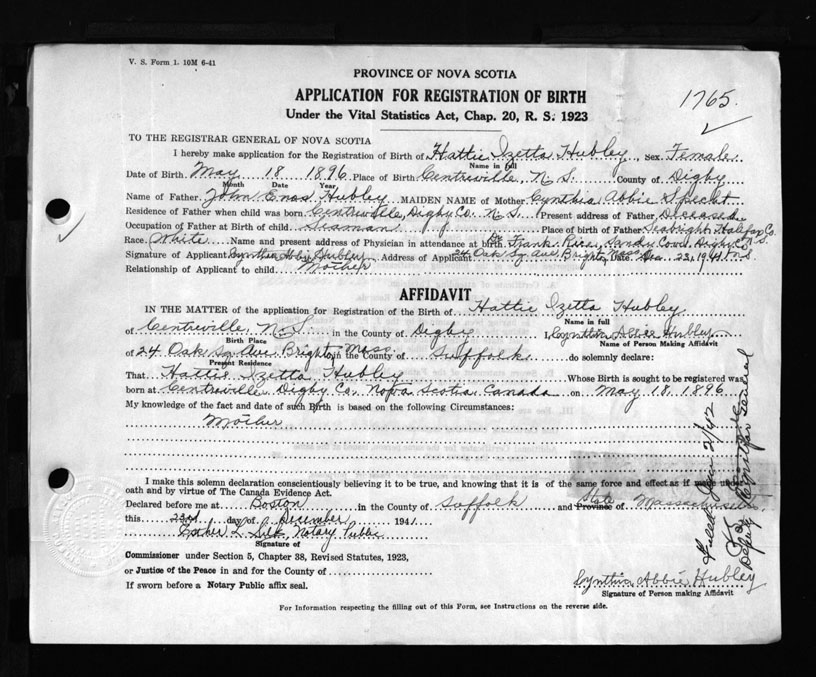 V. S. Form 1. 10M 6-41
PROVINCE OF NOVA SCOTIA
APPLICATION FOR REGISTRATION OF BIRTH
1765.
Under the Vital Statistics Act, Chap. 20, R. S. 1923
TO THE REGISTRAR GENERAL OF NOVA SCOTIA
I hereby make application for the Registration of Birth of Hattie Izetta Hubley Sex Female
Name in full
Date of Birth May 18 1896 Place of Birth Centreville, N. S. County of Digby
Month Date Year
Name of Father John Enos Hubley MAIDEN NAME of Mother Cynthia Abbie Specht
Residence of Father when child was born Centreville, Digby Co. N. S. Present address of Father Deceased
Occupation of Father at Birth of child Seaman Place of birth of Father Seabright Halifax Co. N. S.
Race White Name and present address of Physician in attendance at birth Dr. Frank Rice, Sandy Cove, Digby Co.
Signature of Applicant Cynthia Abbie Hubley Address of Applicant 24 Oak Sq Ave Brighton, Mass Date Dec 23, 1941 N.S.
Relationship of Applicant to child Mother
AFFIDAVIT
IN THE MATTER of the application for Registration of the Birth of Hattie Izetta Hubley
Name in full
of Centreville, N. S. in the County of Digby I, Cynthia Abbie Hubley
Birth Place Name of Person Making Affidavit
of 24 Oak Sq Ave Bright Mass. in the County of Suffolk do solemnly declare:
Present Residence
That Hattie Izetta Hubley Whose Birth is sought to be registered was
born at Centreville Digby Co. Nova Scotia, Canada on May 18, 1896
My knowledge of the fact and date of such Birth is based on the following Circumstances:
Mother
I make this solemn declaration conscientiously believing it to be true, and knowing that it is of the same force and effect as if made under
oath and by virtue of The Canada Evidence Act.
Declared before me at Boston in the County of Suffolk and State Province of Massachusetts
this 23rd day of December 1941
Esther L. Silk, Notary Public
Signature of
Commissioner under Section 5, Chapter 38, Revised Statutes, 1923,
or Justice of the Peace in and for the County of
If sworn before a Notary Public affix seal.
Cynthia Abbie Hubley
Signature of Person making Affidavit
For Information respecting the filling out of this Form, see Instructions on the reverse side.
Filed Jan 2/42
Deputy Registrar General